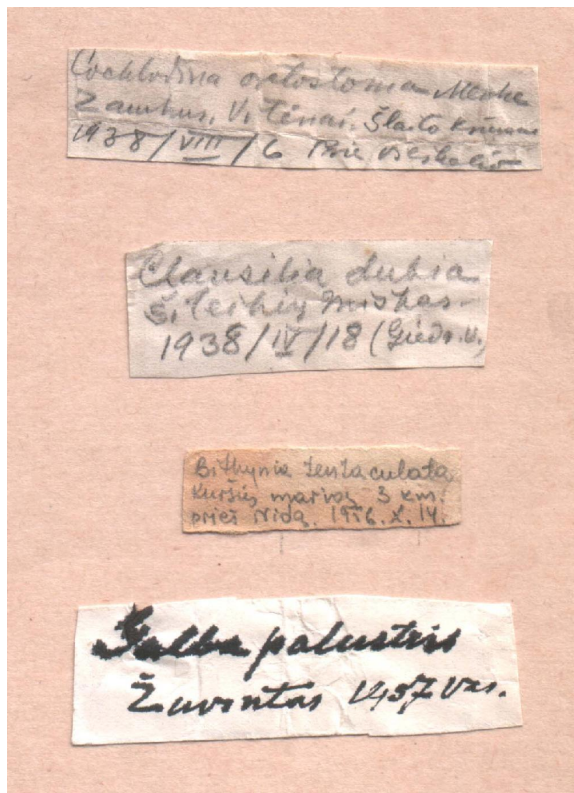 Cochlodina ortostoma Menke
1938/VIII/6 Prie
Clausilia dubia
Šileikių miškas
1938/IV/18 (Giedr. v.)
Bithynia tentaculata
Kuršių marios 3 km.
prieš Nidą. 1956. X. 14.
Galba palustris
Žuvintas 1957 vas.